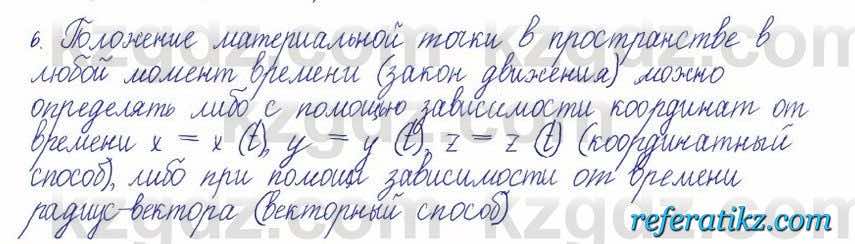 6. Положение материальной точки в пространстве в
любой момент времени (закон движения) можно
определять либо с помощью зависимости координат от
времени x = x (t), y = y (t), z = z (t) (координатный
способ), либо при помощи зависимости от времени
радиус-вектора (векторный способ)
referatikz.com